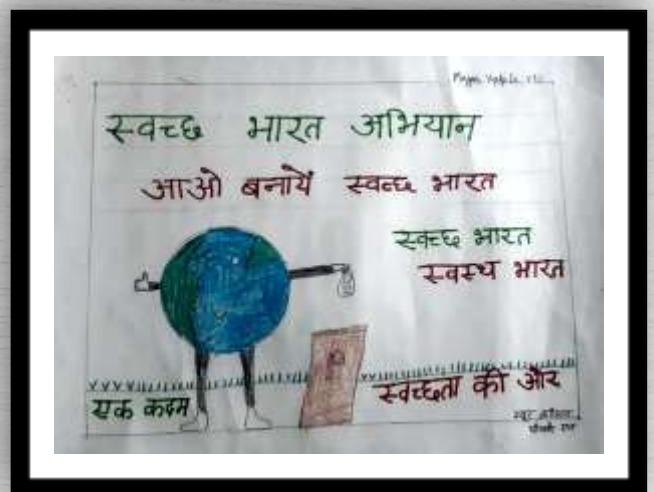 स्वच्छ भारत अभियान
आओ बनायें स्वच्छ भारत
स्वच्छ भारत
स्वस्थ भारत
एक कदम
स्वच्छता की ओर